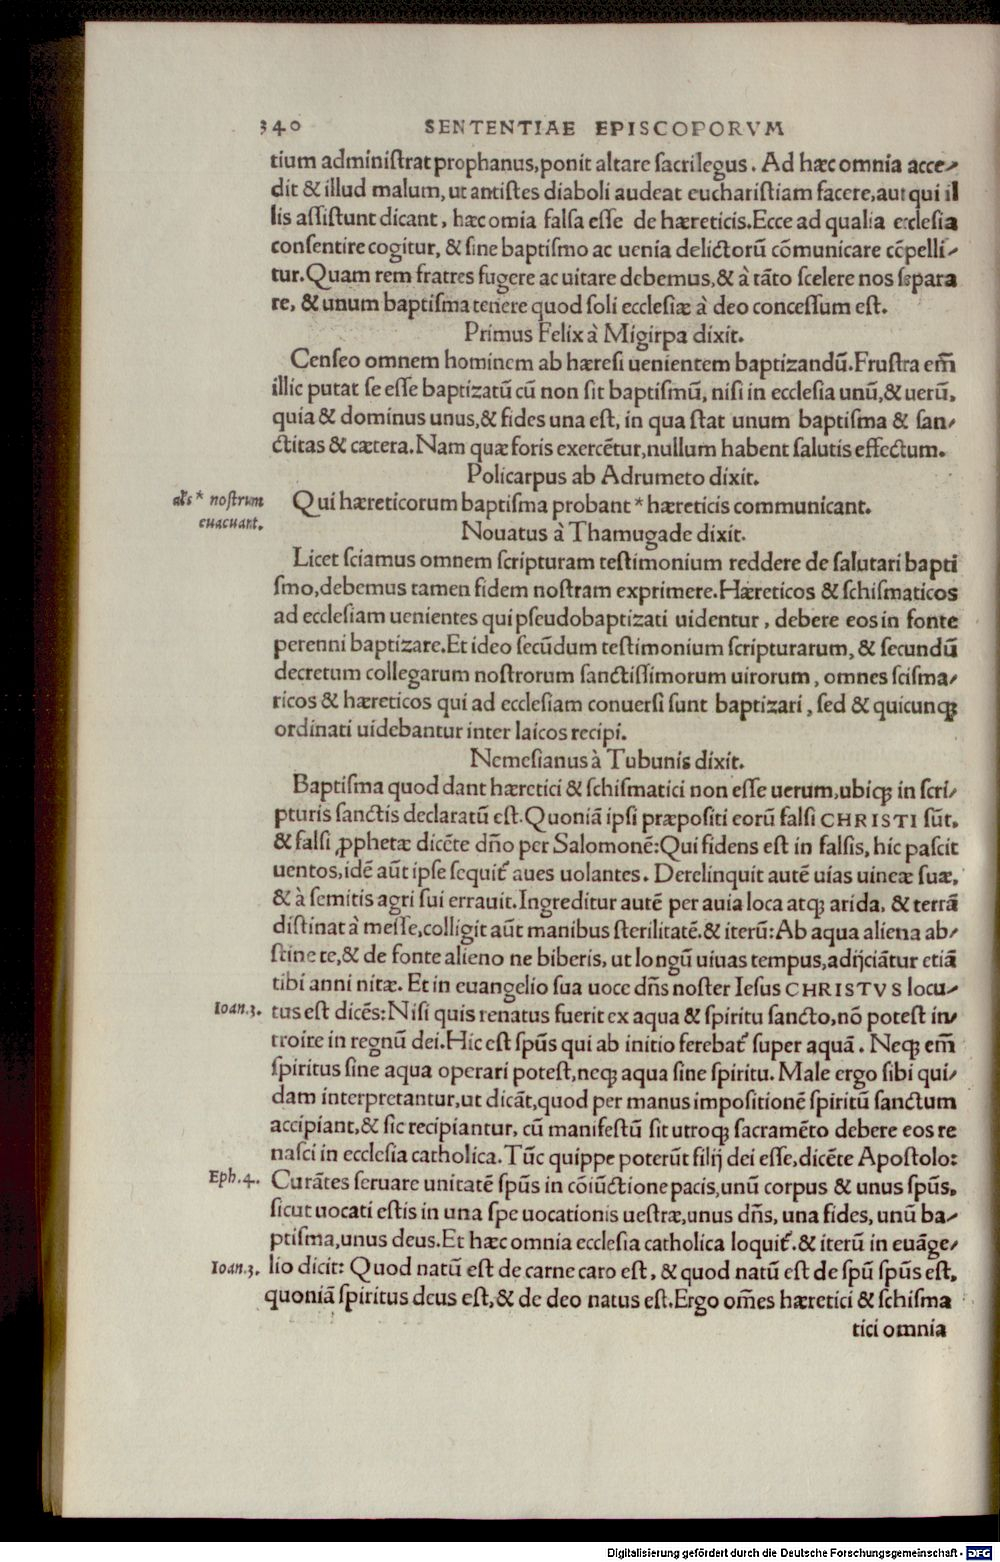 340 SENTENTIAE EPISCOPORVM
tium adminiſtrat prophanus,ponit altare ſacrilegus. Ad hæc omnia acce-
dit & illud malum, ut antiſtes diaboli audeat euchariſtiam facere,aut qui il
lis aſſiſtunt dicant, hæc omia falſa eſſe de hæreticis.Ecce ad qualia eccleſia
conſentire cogitur, & ſine baptiſmo ac uenia delictorũ cõmunicare cõpelli-
tur.Quam rem fratres fugere ac uitare debemus,& à tãto ſcelere nos ſepara
re, & unum baptiſma tenere quod ſoli eccleſiæ à deo conceſſum eſt.
Primus Felix à Migirpa dixit.
Cenſeo omnem hominem ab hæreſi uenientem baptizandũ.Fruſtra em̃
illic putat ſe eſſe baptizatũ cũ non ſit baptiſmũ, niſi in eccleſia unũ,& uerũ,
quia & dominus unus,& fides una eſt, in qua ſtat unum baptiſma & ſan-
ctitas & cætera.Nam quæ foris exercẽtur,nullum habent ſalutis effectum.
Policarpus ab Adrumeto dixit.
al's * noſtrum
euacuant.
Qui hæreticorum baptiſma probant * hæreticis communicant.
Nouatus à Thamugade dixit.
Licet ſciamus omnem ſcripturam teſtimonium reddere de ſalutari bapti
ſmo,debemus tamen fidem noſtram exprimere.Hæreticos & ſchiſmaticos
ad eccleſiam uenientes qui pſeudobaptizati uidentur, debere eos in fonte
perenni baptizare.Et ideo ſecũdum teſtimonium ſcripturarum, & ſecundũ
decretum collegarum noſtrorum ſanctiſſimorum uirorum, omnes sciſma-
ticos & hæreticos qui ad eccleſiam conuerſi ſunt baptizari, ſed & quicunqꝫ
ordinati uidebantur inter laicos recipi.
Nemeſianus à Tubunis dixit.
Baptiſma quod dant hæretici & ſchiſmatici non eſſe uerum,ubiqꝫ in ſcri-
pturis ſanctis declaratũ eſt.Quoniã ipſi præpoſiti eorũ falſi CHRISTI ſũt,
& falſi ꝓphetæ dicẽte dño per Salomonẽ:Qui fidens eſt in falſis, hic paſcit
uentos,idẽ aũt ipſe ſequit᷑ aues uolantes. Derelinquit autẽ uias uineæ ſuæ,
& à ſemitis agri ſui errauit.Ingreditur autẽ per auia loca atqꝫ arida, & terrã
diſtinat à meſſe,colligit aũt manibus ſterilitatẽ.& iterũ:Ab aqua aliena ab-
ſtinete,& de fonte alieno ne biberis, ut longũ uiuas tempus,adijciãtur etiã
tibi anni nitæ. Et in euangelio ſua uoce dñs noſter Ieſus CHRISTVS locu-
Ioan.3.
tus eſt dicẽs:Niſi quis renatus fuerit ex aqua & ſpiritu ſancto,nõ poteſt in-
troire in regnũ dei.Hic eſt ſpũs qui ab initio ferebat᷑ ſuper aquã. Neqꝫ em̃
ſpiritus ſine aqua operari poteſt,neqꝫ aqua ſine ſpiritu. Male ergo ſibi qui-
dam interpretantur,ut dicãt,quod per manus impoſitionẽ ſpiritũ ſanctum
accipiant,& ſic recipiantur, cũ manifeſtũ ſit utroqꝫ ſacramẽto debere eos re
naſci in eccleſia catholica.Tũc quippe poterũt filij dei eſſe,dicẽte Apoſtolo:
Eph.4.
Curãtes ſeruare unitatẽ ſpũs in cõiũctione pacis,unũ corpus & unus ſpũs,
ſicut uocati eſtis in una ſpe uocationis ueſtræ,unus dñs, una fides, unũ ba-
ptiſma,unus deus.Et hæc omnia eccleſia catholica loquit᷑.& iterũ in euãge-
Ioan.3.
lio dicit: Quod natũ eſt de carne caro eſt, & quod natũ eſt de ſpũ ſpũs eſt,
quoniã ſpiritus deus eſt,& de deo natus eſt.Ergo om̃es hæretici & ſchiſma
tici omnia
Digitalisierung gefördert durch die Deutsche Forschungsgemeinschaft - DFG